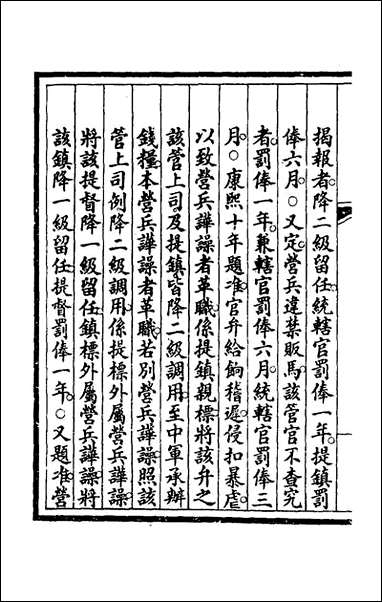 揭報者降二級留任統轄官罰俸一年提鎮罰
俸六月○又定營兵違禁販馬該管官不查究
者罰俸一年兼轄官罰俸六月統轄官罰俸三
月○康熙十年題准官弁給餉稽遲侵扣暴虐
以致營兵譁譟者革職係提鎮親標將該弁之
該管上司及提鎮皆降二級調用至中軍承辦
錢糧本營兵譁譟者革職若別營兵譁譟照該
管上司例降二級調用係提標外屬營兵譁譟
將該提督降一級留任鎮標外屬營兵譁譟將
該鎮降一級留任提督罰俸一年○又題准營